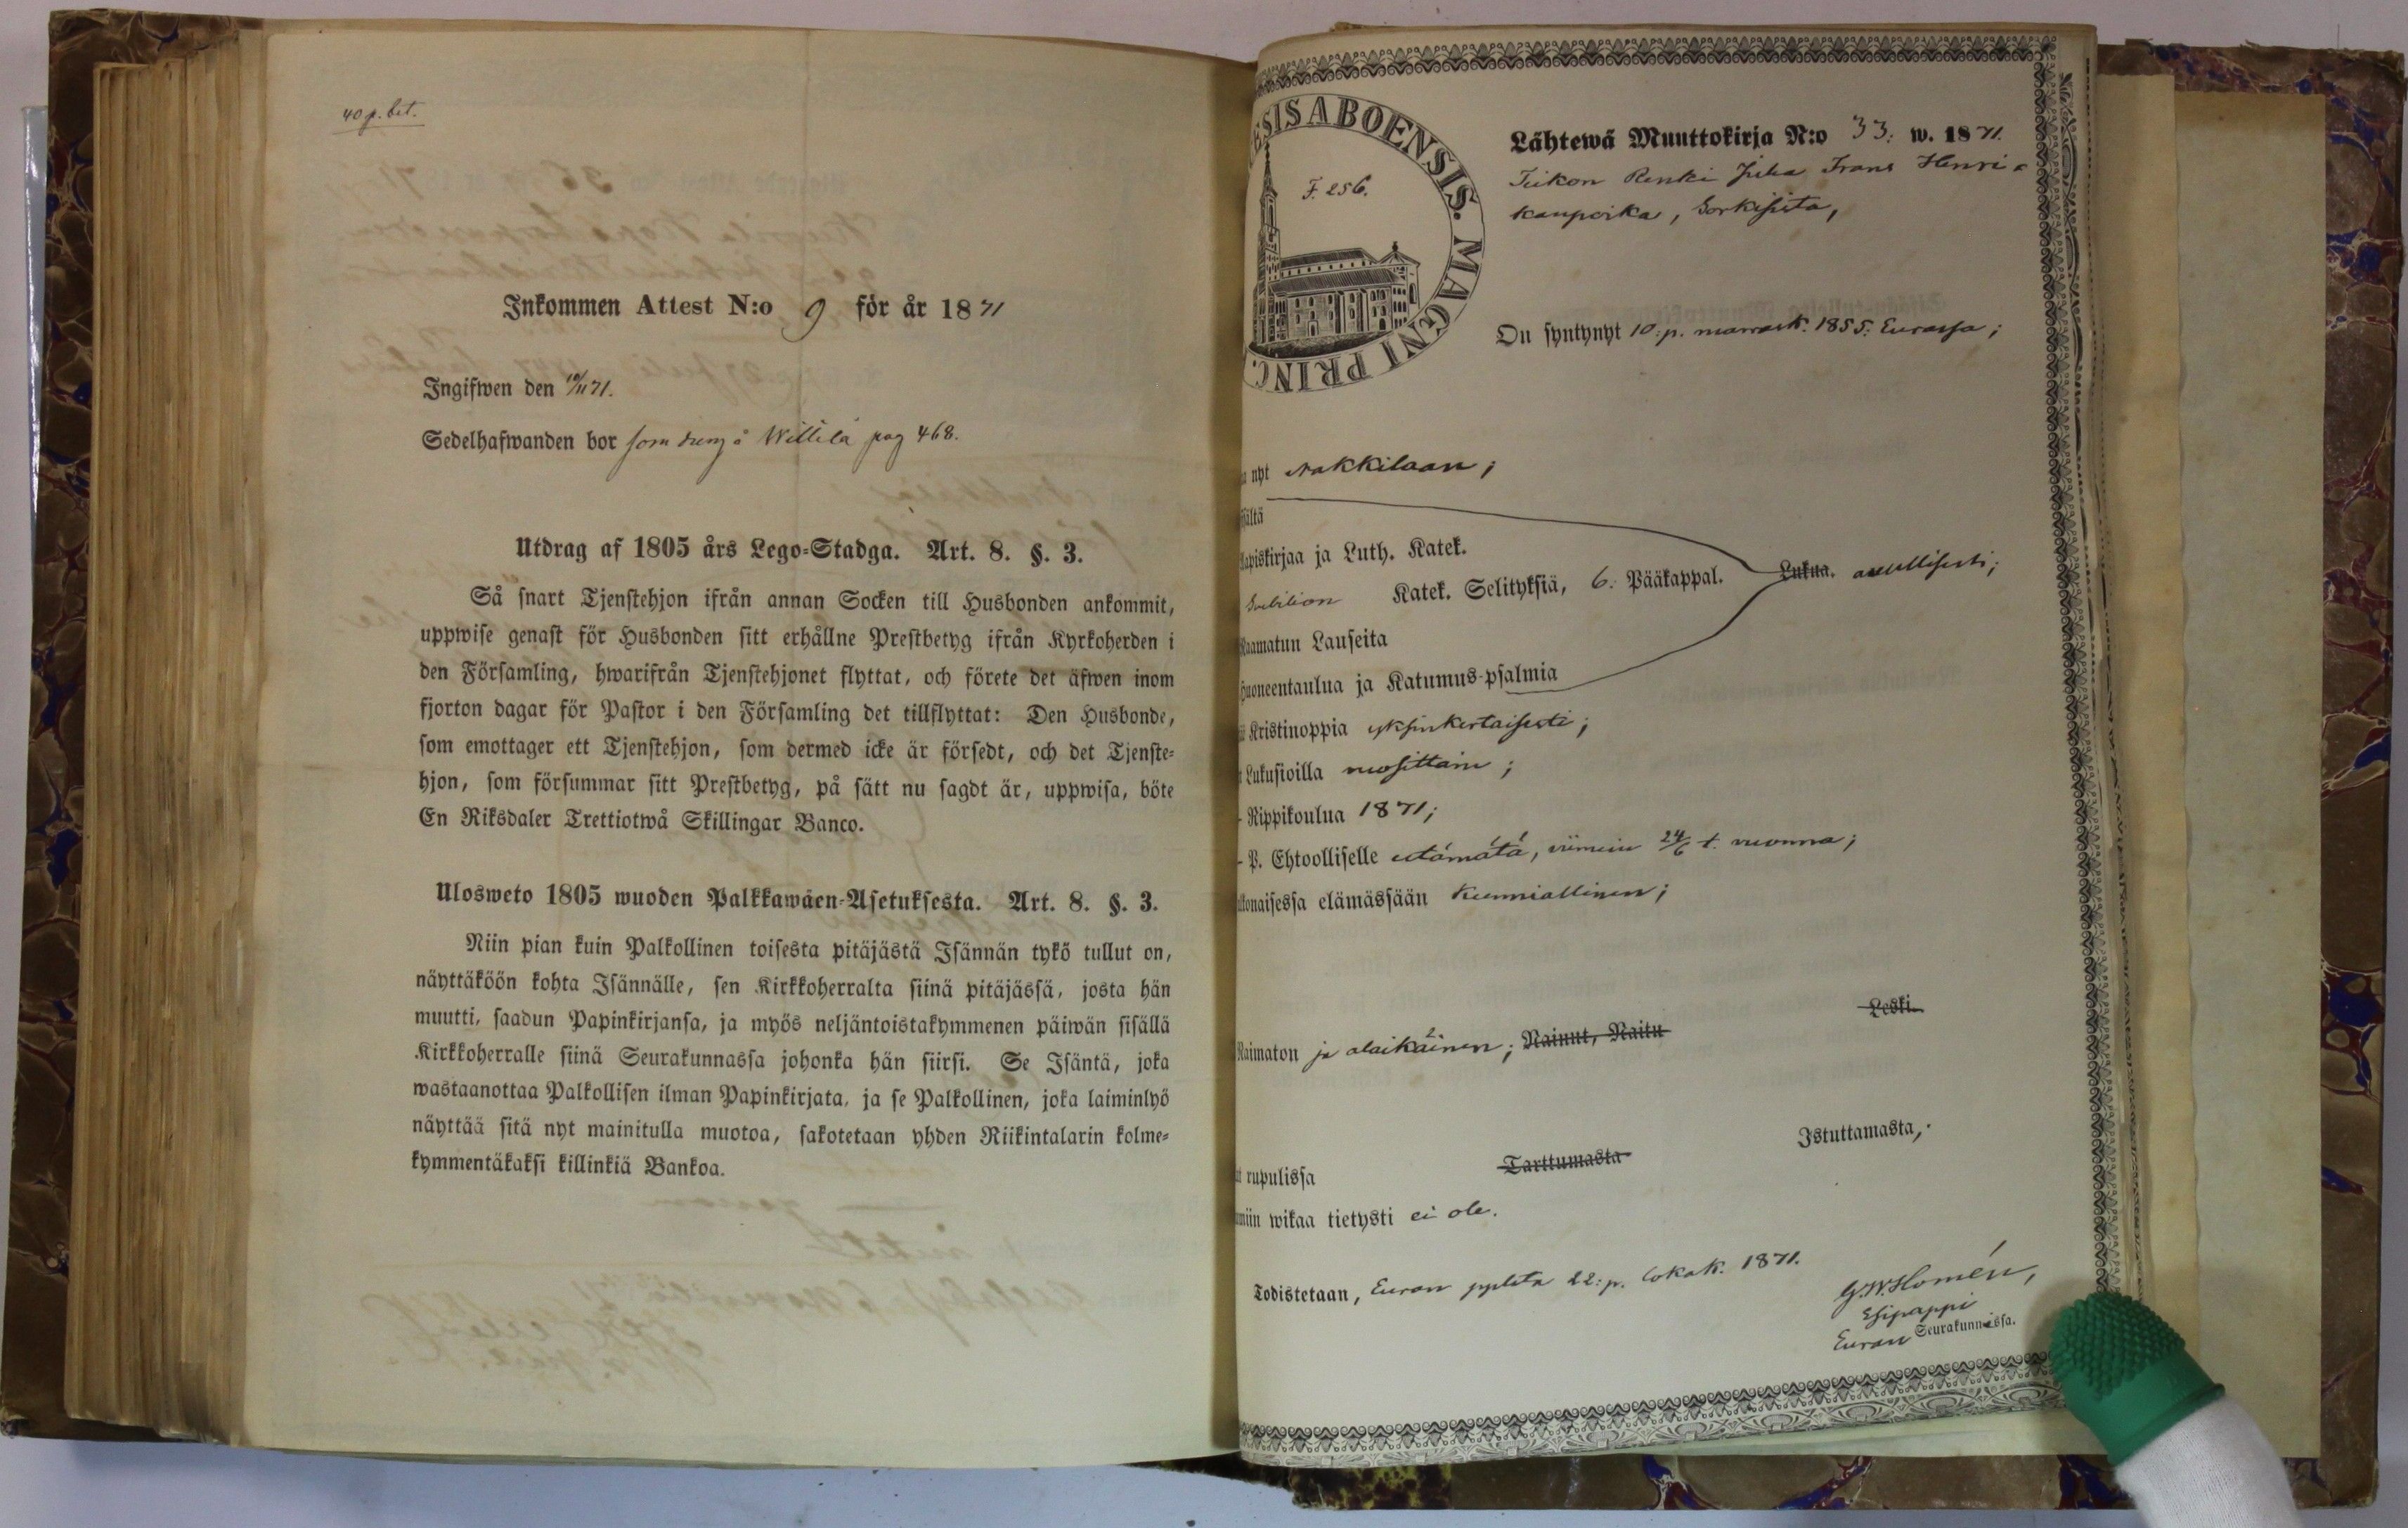 40 p. bet.
Inkommen Attest N:o 9 för år 1871
Ingifwen den 10/11 71.
Sedelhafwanden bor som dreng å Willilä pag 468.
Utdrag af 1805 års Lego-Stadga. Art. 8. §. 3.
Så snart Tjenstehjon ifrån annan Socken till Husbonden ankommit,
uppwise genast för Husbonden sitt erhållne Prestbetyg ifrån Kyrkoherden i
den Församling, hwarifrån Tjenstehjonet flyttat, och förete det äfwen inom
fjorton dagar för Pastor i den Församling det tillflyttat: Den Husbonde,
som emottager ett Tjenstehjon, som dermed icke är försedt, och det Tjenste-
hjon, som försummar sitt Prestbetyg, på sätt nu sagdt är, uppwisa, böte
En Riksdaler Trettiotwå Skillingar Banco.
Ulosweto 1805 wuoden Palkkawäen-Asetuksesta. Art. 8. §. 3.
Niin pian kuin Palkollinen toisesta pitäjästä Isännän tykö tullut on,
näyttäköön kohta Isännälle, sen Kirkkoherralta siinä pitäjässä, josta hän
muutti, saadun Papinkirjansa, ja myös neljäntoistakymmenen päiwän sisällä
Kirkkoherralle siinä Seurakunnassa johonka hän siirsi. Se Isäntä, joka
wastaanottaa Palkollisen ilman Papinkirjata, ja se Palkollinen, joka laiminlyö
näyttää sitä nyt mainitulla muotoa, sakotetaan yhden Riikintalarin kolme-
kymmentäkaksi killinkiä Bankoa.
ESIS ABOENSIS. MAGNI PRINC.
F. 256.
Lähtewä Muuttokirja N:o 33. w. 1871.
Renki Juha Frans Henri-
kanpoika, Sorkisista,
On syntynyt 10:p. marrask. 1855. Eurassa;
nyt Nakkilaan;
ältä
apiskirjaa ja Luth. Katek.
Svebilion Katek. Selityksiä, 6. Pääkappal. Lukua. awullisesti;
Raamatun Lauseita
Huoneentaulua ja Katumus-psalmia
Kristinoppia yksinkertaisesti;
Lukusioilla wuosittain;
Rippikoulua 1871;
P. Ehtoolliselle estämätä, wiimein 24/6 t. wuonna;
lkonaisessa elämässään kunniallinen;
Naimaton ja alaikäinen; Nainut, Naitu Leski.
rupulissa Tarttumasta Istuttamasta,
miin wikaa tietysti ei ole.
Todistetaan, Euran pplsta 22:p. lokak. 1871.
G.W. Homén,
Esipappi
Euran Seurakunnassa.